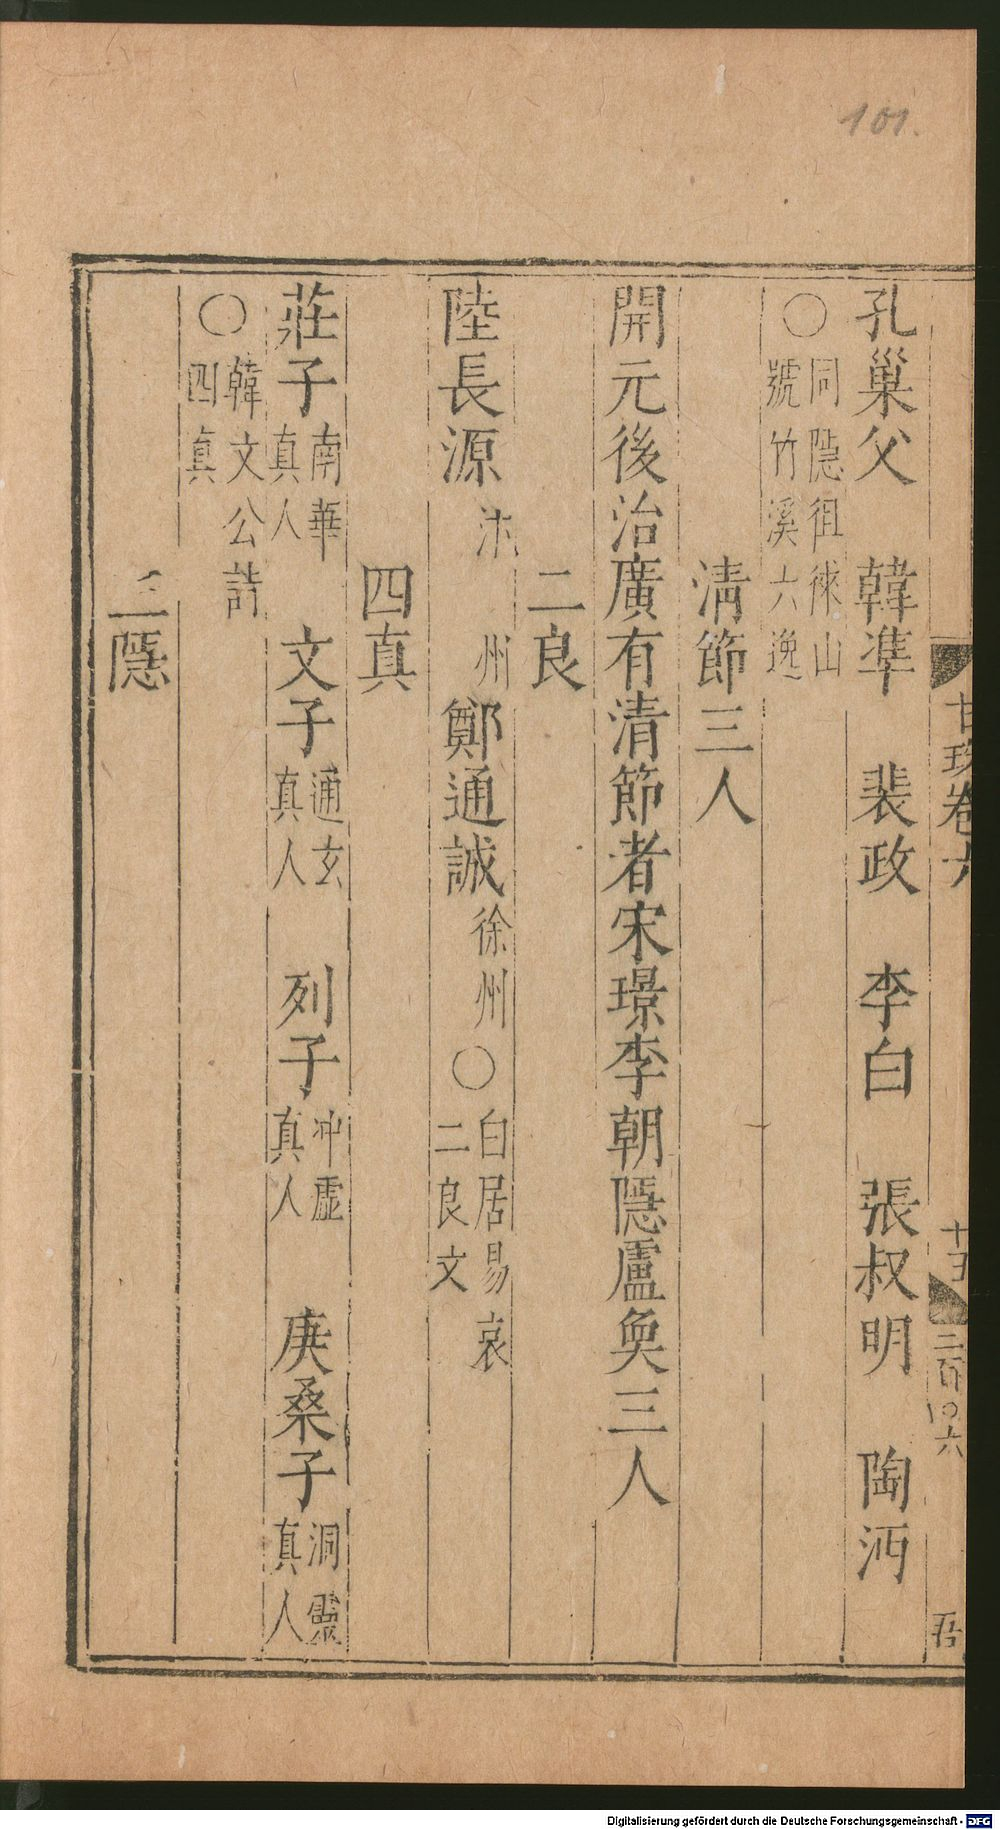 101.
甘珠卷六
十五
二百〇六
吾
孔巢父 韓凖 裴政 李白 張叔明 陶沔
〇同隱徂徠山
號竹溪六逸
淸節三人
開元後治廣有清節者宋璟李朝隱盧奐三人
二良
陸長源 州鄭通誠徐州〇白居易哀
二良文
四真
莊子南華真人 文子通玄真人 列子冲虛真人 庚桑子洞靈真人
〇韓文公詩
四真
三隱
Digitalisierung gefördert durch die Deutsche Forschungsgemeinschaft - DFG